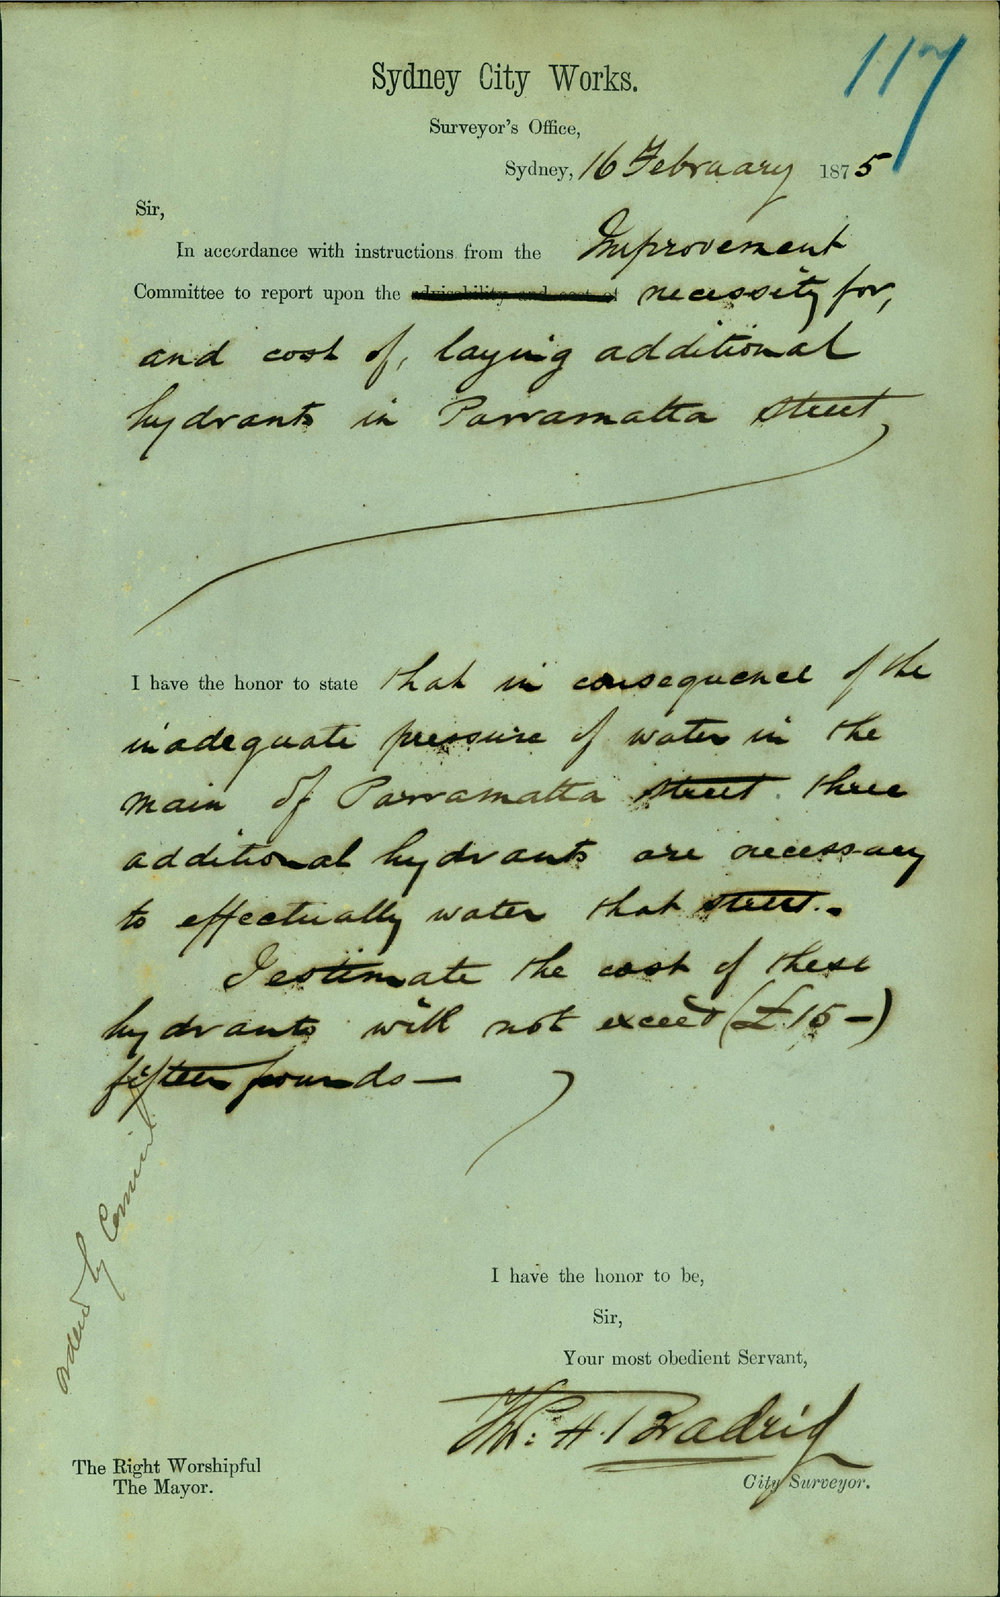 117
Sydney City Works.
Surveyor's Office,
Sydney, 16 February 1875
Sir,
In accordance with instructions from the Improvement
Committee to report upon the advisability and cost of necessity for,
and cost of, laying additional
hydrants in Parramatta Street
I have the honor to state that in consequence of the
inadequate pressure of water in the
main of Parramatta Street three
additional hydrants are necessary
to effectually water that street.
I estimate the cost of these
hydrants will not exceed (£15 -)
fifteen pounds —
I have the honor to be,
Sir,
Your most obedient Servant,
H. Bradrig
City Surveyor.
The Right Worshipful
The Mayor.
by